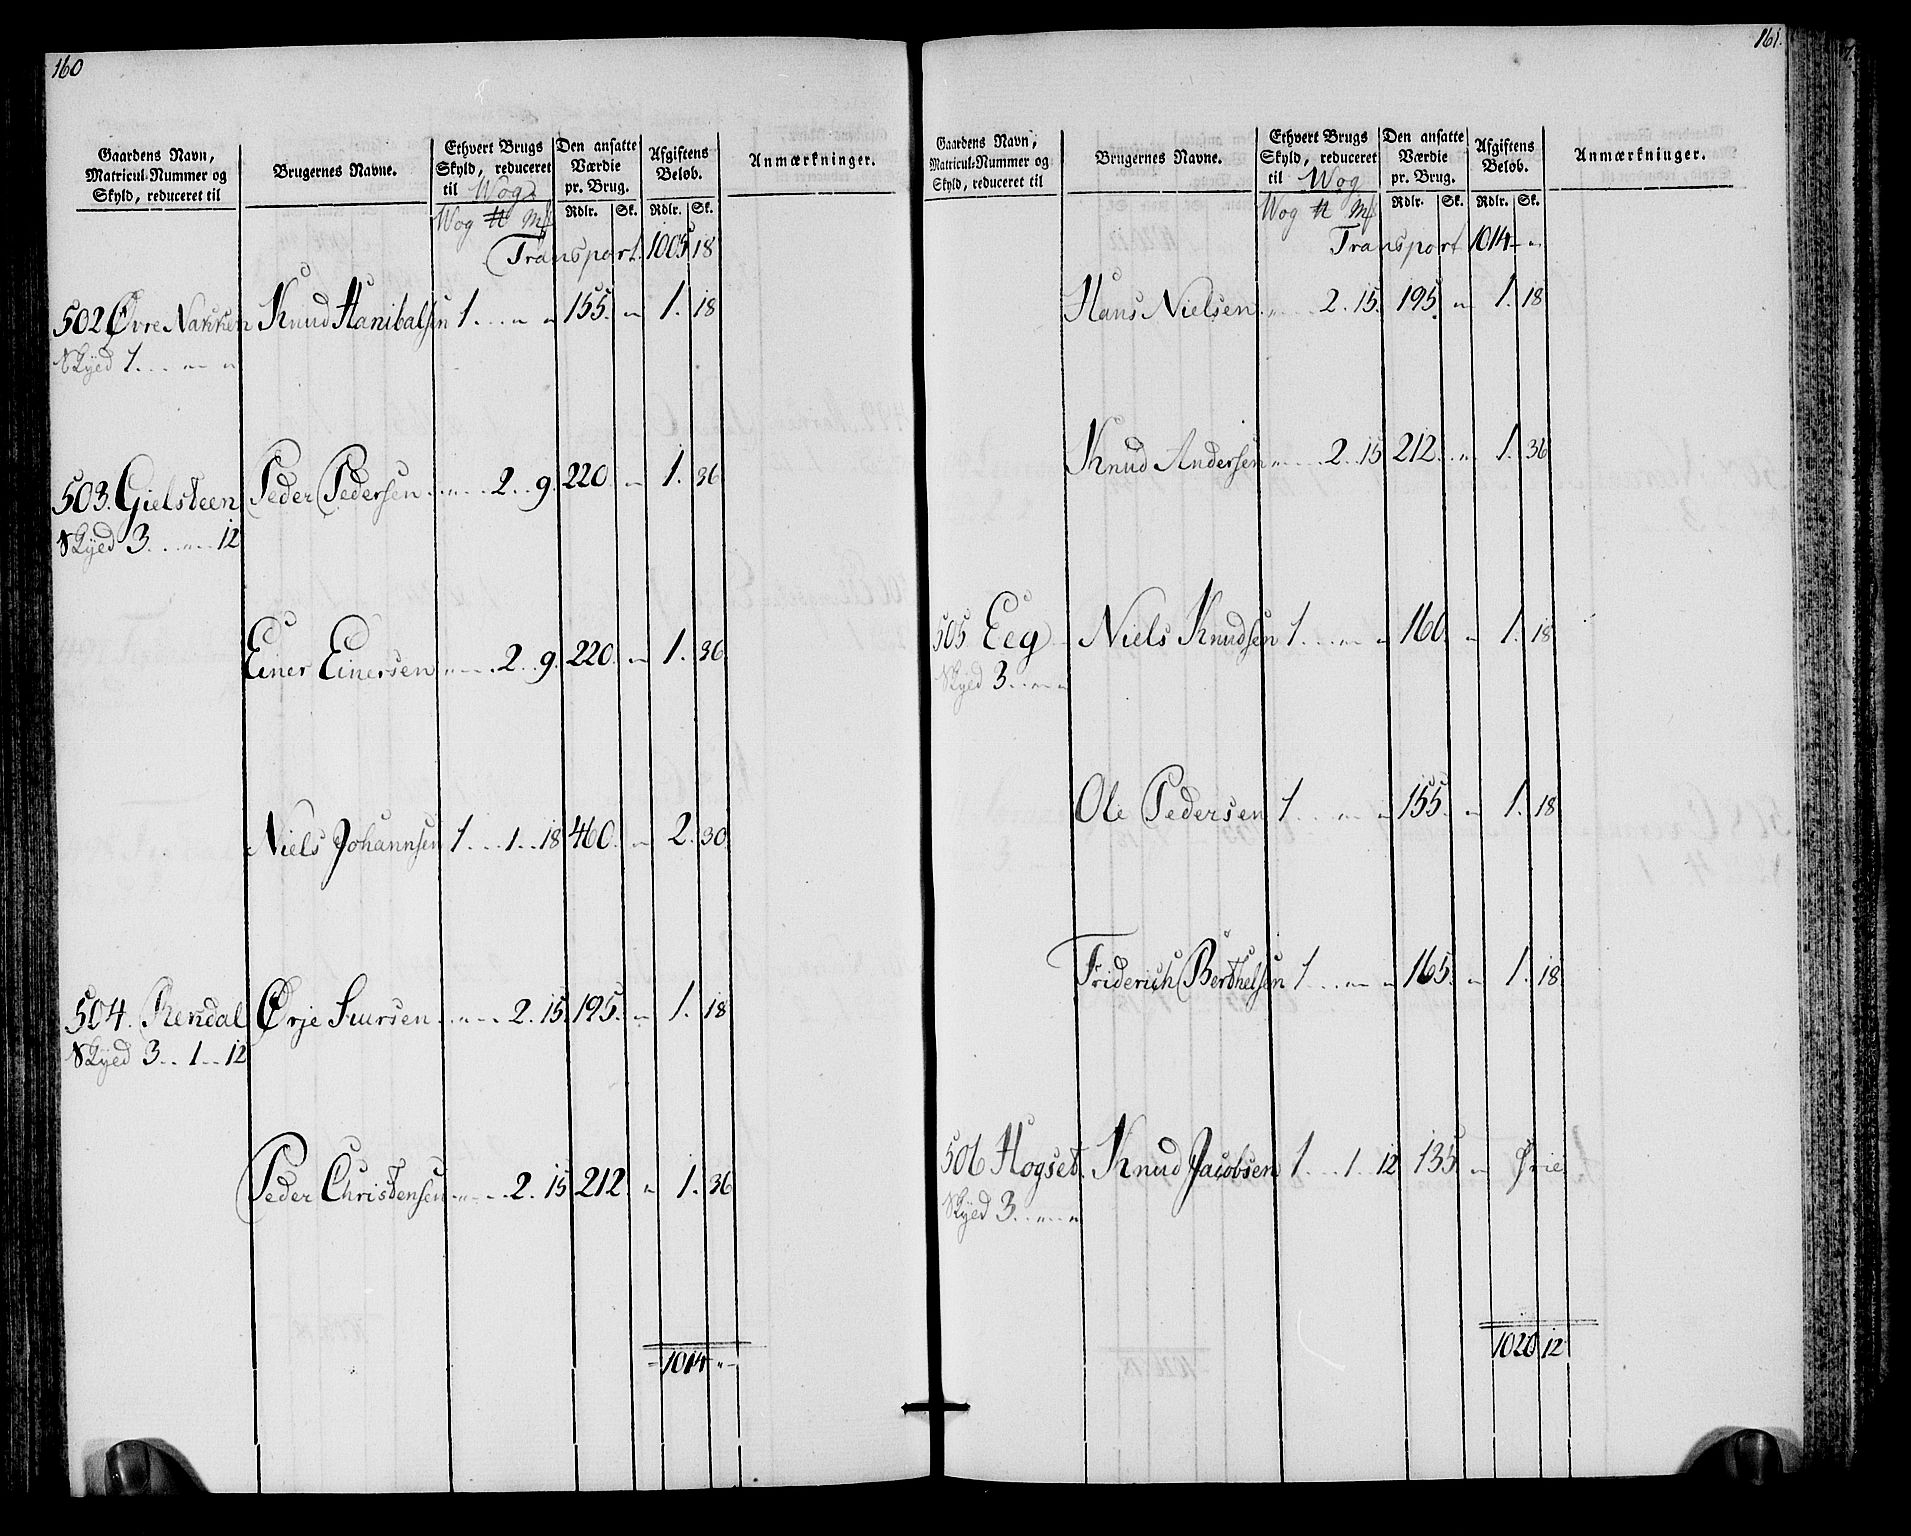 160
Gaardens Navn, Matricul-Nummer og Skyld, reduceret til
Brugernes Navne.
Ethvert Brugs Skyld, reduceret til Wog
Den ansatte Værdie pr. Brug.
Afgiftens Beløb.
Anmærkninger.
Wog ℔ Mk Rdlr. Sk. Rdlr. Sk.
Transport 1005 18
502 Øvre Nakken Knud Hanibalsen 1 . . . „ „ 155. „ 1. 18
Skyed 1 . . . „ „
503. Gielsteen Peder Pedersen „ . . 2 . . 9. 220 „ 1. 36
Skyed 3 . . „ . . 12
Einer Einersen „ . . 2 . . 9. 220. „ 1. 36
Niels Johannsen 1 . . . 1 . . 18 460. „ 2. 30.
504. Rendal Ørje Siursen „ . . 2. 15. 195. „ 1. 18
Skyed 3 . . 1 . . 12
Peder Christensen „ . . 2. 15 212. „ 1. 36
1014 „
161.
Gaardens Navn, Matricul-Nummer og Skyld, reduceret til
Brugernes Navne.
Ethvert Brugs Skyld, reduceret til Wog
Den ansatte Værdie pr. Brug.
Afgiftens Beløb.
Anmærkninger.
Wog ℔ Mk Rdlr. Sk. Rdlr. Sk.
Transport 1014 „
Hans Nielsen „ . . 2. 15. 195. „ 1. 18
Knud Andersen „ . . 2. 15 212. „ 1. 36
505 Eeg Niels Knudsen 1 . . „ „ 160. „ 1. 18
Skyed 3 . . „ „
Ole Pedersen 1 . . „ „ 155. „ 1. 18
Friderich Berthelsen 1 . . „ „ 165. „ 1. 18
506 Hogset. Knud Jacobsen 1 . . . 1 . . 12 135. „ Frie
Skyed 3 . . „ „
1020 12